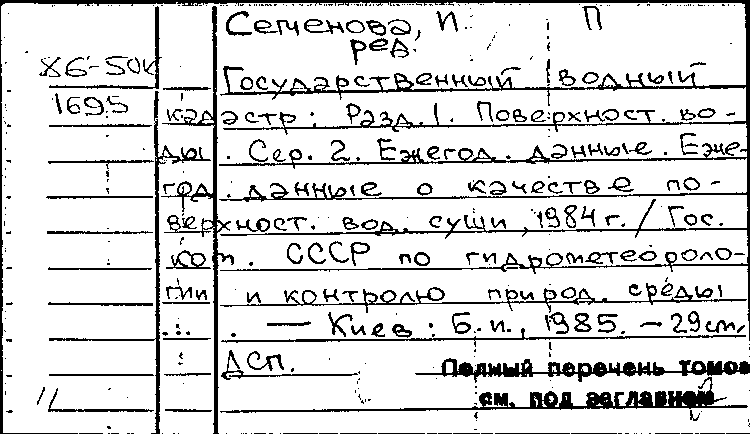 Семенова, И. П
ред.
X6-50к
Государственный водный
1695
кадастр: Разд.1. Поверхност. во-
ды. Сер. 2. Ежегод. данные. Еже-
год. данные о качестве по-
верхност. вод. суши, 1984 г. / Гос.
ком. СССР по гидрометеороло-
гии и контролю природ. среды
. — Киев: Б.и., 1985. - 29 см.
ДСП.
Полный перечень томов
см. под заглавием
11